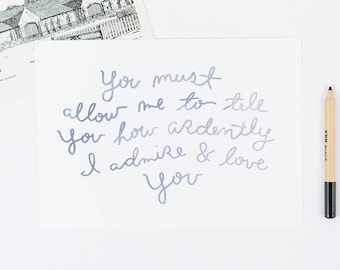 You must
allow me to tele
You how ardently
I admire & love
You